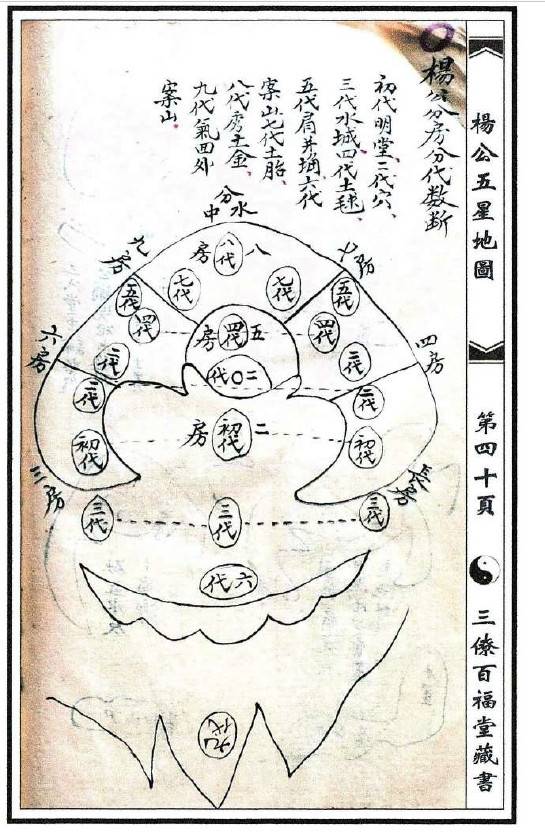 楊公五星地圖
第四十頁
三僚百福堂藏書
楊公分房分代数断
初代明堂、二代穴、
三代水城四代土毬、
五代肩井埇六代
案山七代土胎、
八代房土金、
九代氣面外
案山、
分水
中
八房
八代
九房
七房
七代
七代
五代
五代
四代
四代
五房
四代
六房
四房
二代
二代
二〇代
二代
二代
二房
初代
初代
初代
三房
長房
三代
三代
三代
六代
九代